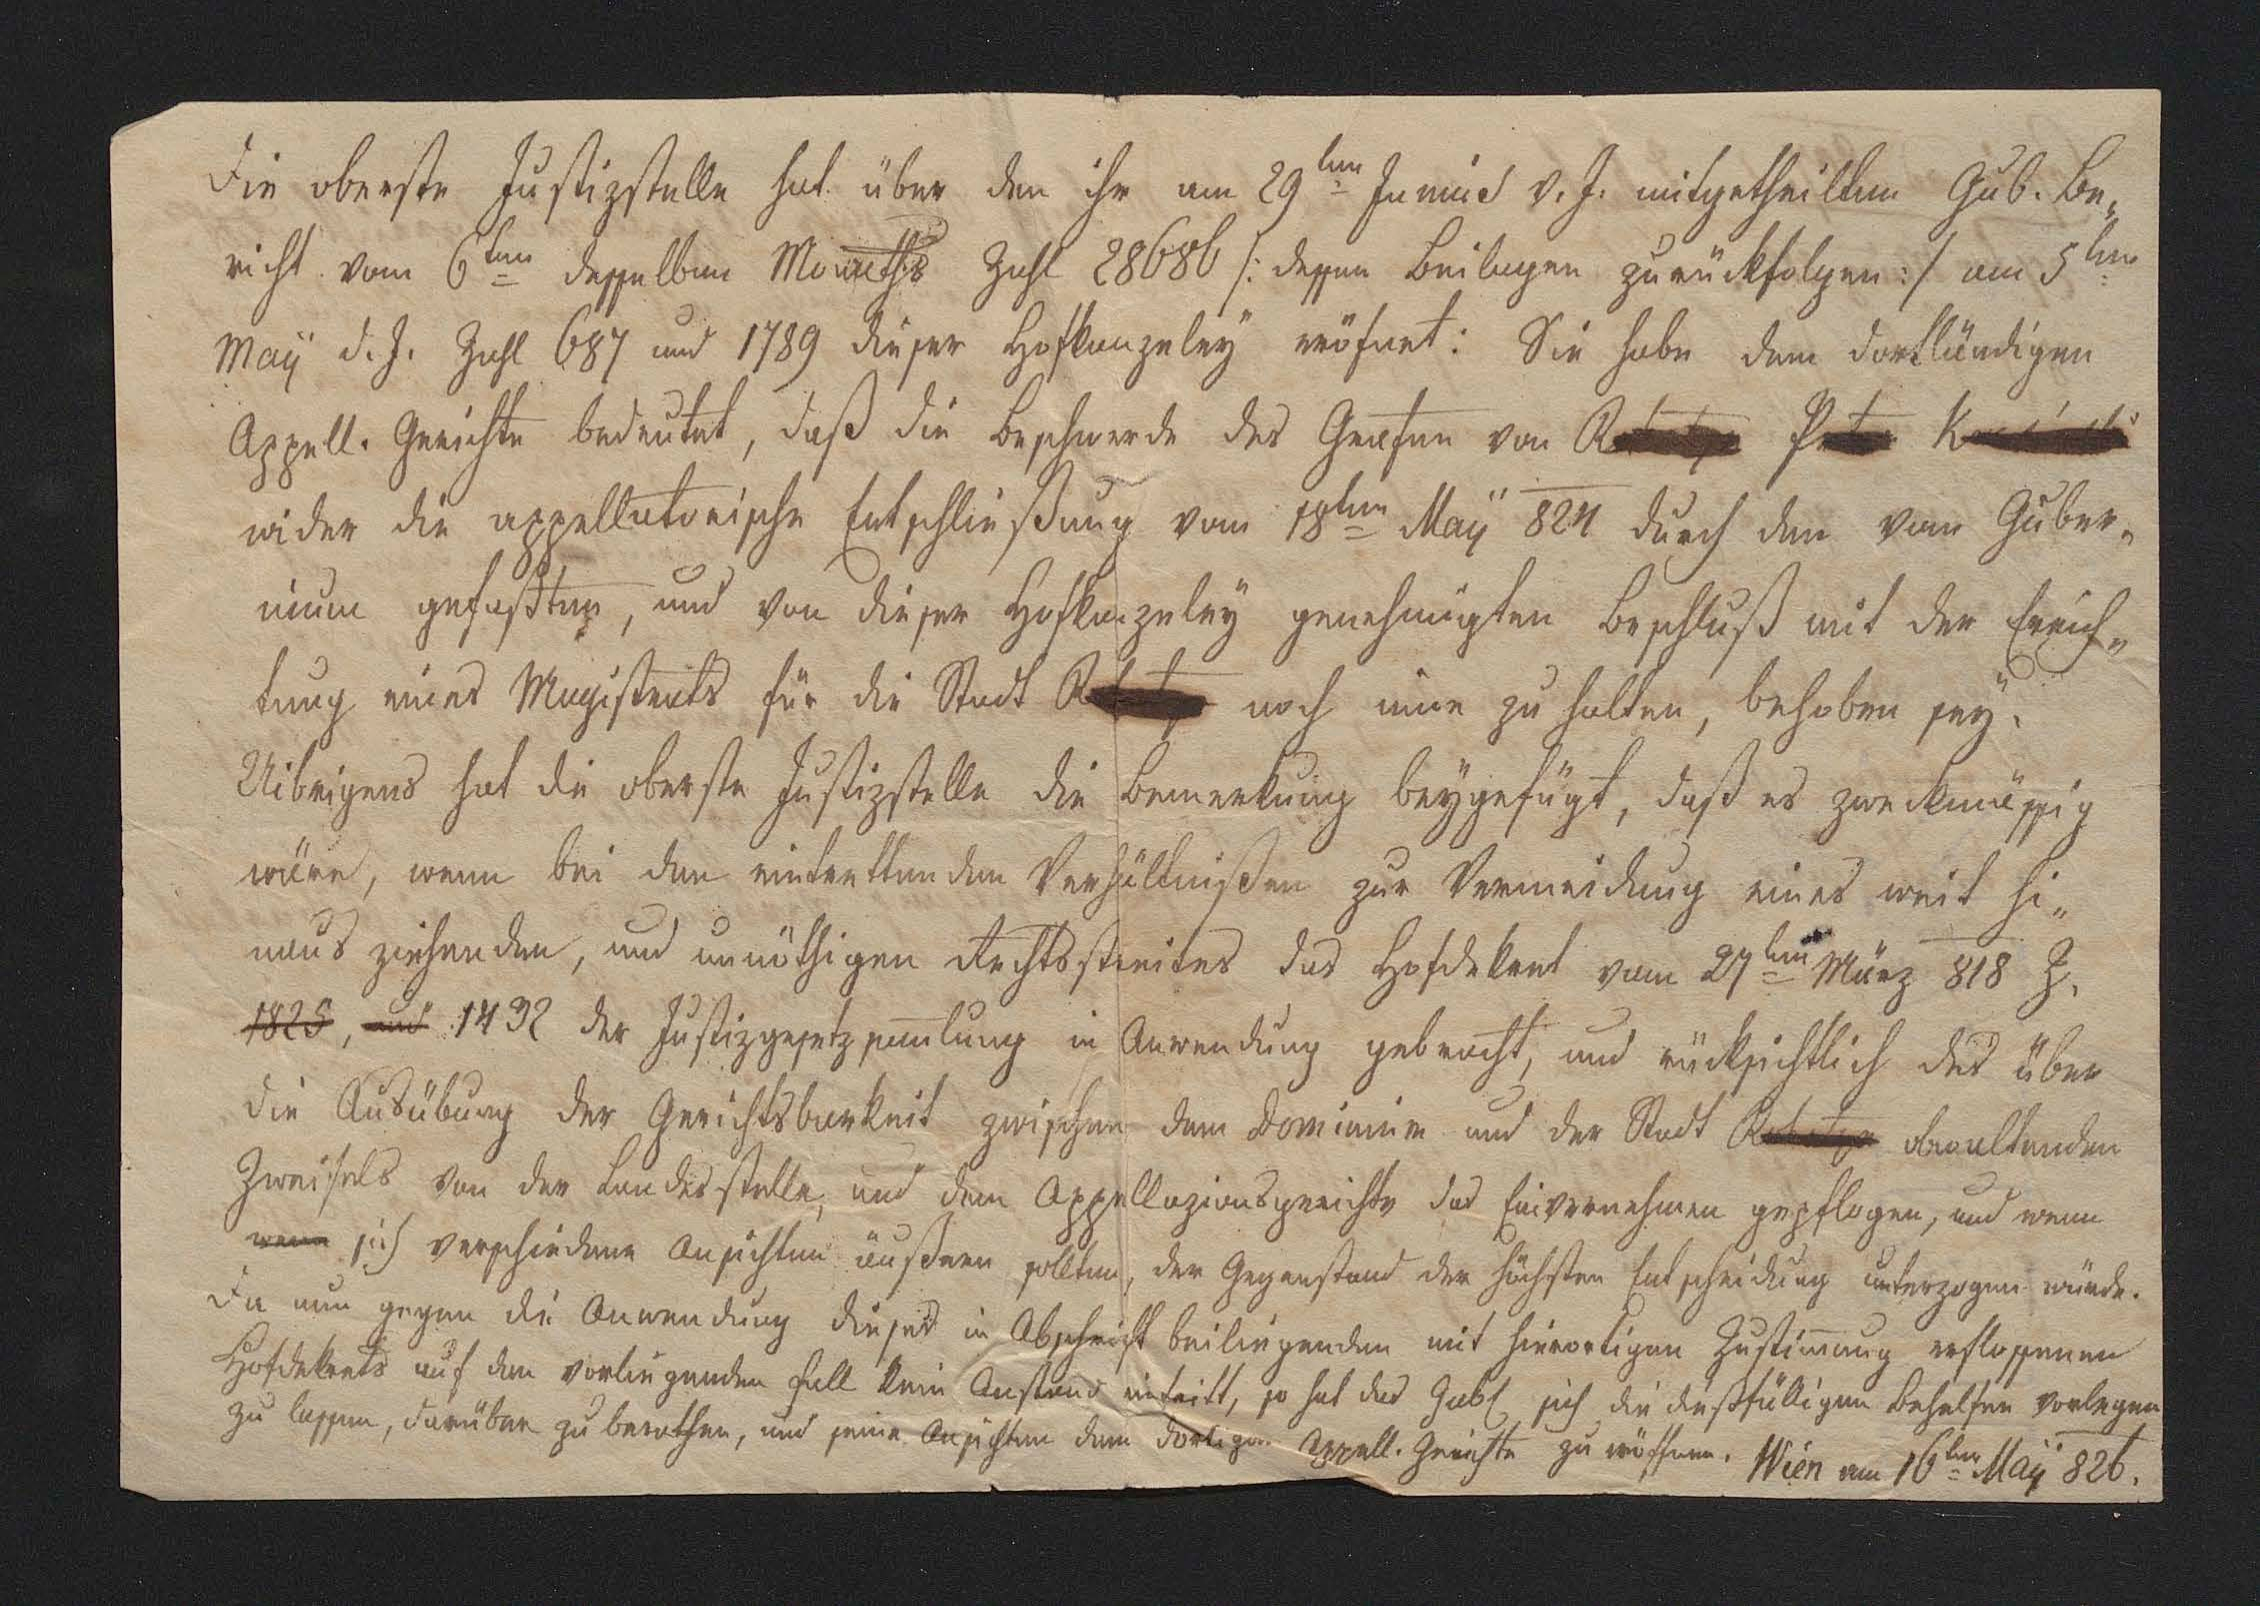 Die oberste Justizstelle hat über den ihr am 29ten Junius v. J. mitgetheilten Gub. Be„
richt vom 6ten desselben Monaths Zahl 28686 /: dessen Beilagen zurückfolgen :/ am 5ten
Maÿ d. J. Zahl 687 und 1789 dieser Hofkanzeleÿ eröfnet: Sie habe dem dortländigen
Appell. Gerichte bedeutet, daß die Beschwerde des Grafen von
wider die appellatorische Entschließung vom 18ten Maÿ 824 durch den vom Guber„
nium gefaßten, und von dieser Hofkanzeleÿ genehmigten Beschluß mit der Errich„
tung eines Magistrats für die Stadt noch inne zu halten, behoben seÿ.
Uibrigens hat die oberste Justizstelle die Bemerkung beÿgefügt, daß es zweckmässig
wäre, wenn bei den eintrettenden Verhältnißen zur Vermeidung eines weit hi„
naus ziehenden, und unnöthigen Rechtsstreites das Hofdekret vom 27ten März 818 Z.
1825, und 1432 der Justizgesetzsamlung in Anwendung gebracht, und rücksichtlich des über
die Ausübung der Gerichtsbarkeit zwischen dem Dominium und der Stadt obwaltenden
Zweifels von der Landesstelle, und dem Appellazionsgerichte das Einvernehmen gepflogen, und wenn
wenn sich verschiedene Ansichten äußern sollten, der Gegenstand der höchsten Entscheidung unterzogen würde.
Da nun gegen die Anwendung dieses in Abschrift beiliegenden mit hierortigen Zustimmung erflossenen
Hofdekrets auf den vorliegenden Fall kein Anstand eintritt, so hat das Gub. sich die dießfälligen Behelfen vorlegen
zu lassen, darüber zu berathen, und seine Ansichten dem dortigen Appell. Gerichte zu eröffnen. Wien am 16ten Maÿ 826.